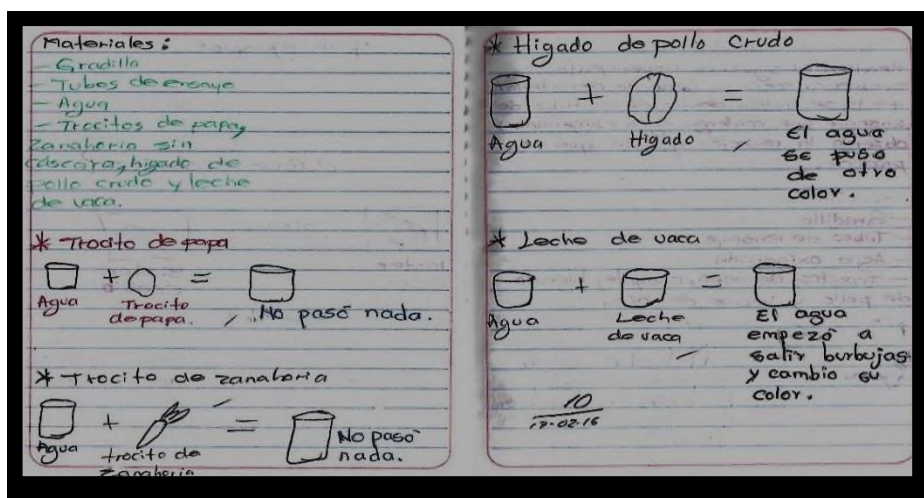 Materiales:
- Gradilla
- Tubos de ensaye
- Agua
- Trocitos de papa,
zanahoria sin
cáscara, higado de
pollo crudo y leche
de vaca.
* Trocito de papa
Agua + Trocito de papa. = No pasó nada.
* Trocito de zanahoria
Agua + trocito de zanahoria = No pasó nada.
* Higado de pollo crudo
Agua + Higado = El agua
se puso
de otro
color.
* Leche de vaca
Agua + Leche de vaca = El agua
empezó a
salir burbujas
y cambio su
color.
10